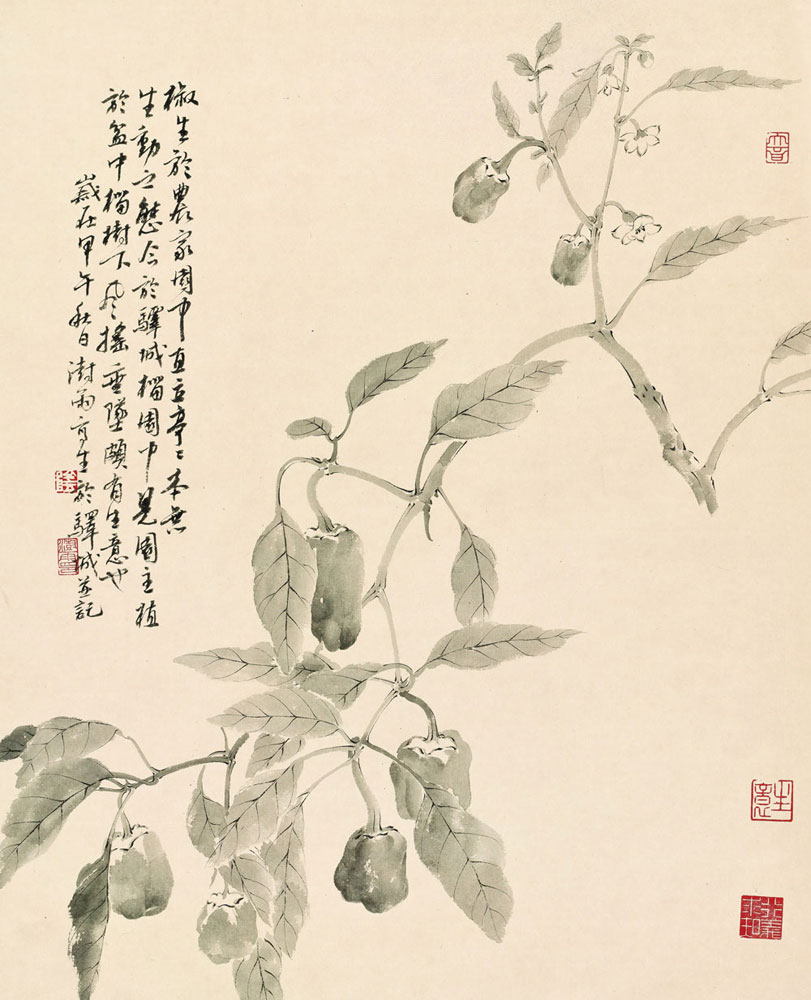 椒生於農家園中直立亭〻本無
生動之態今於驛城榴園中見園主植
於盆中榴樹下風搖垂墜頗有生意也
歲在甲午秋日澍雨亨生於驛城並記
生意